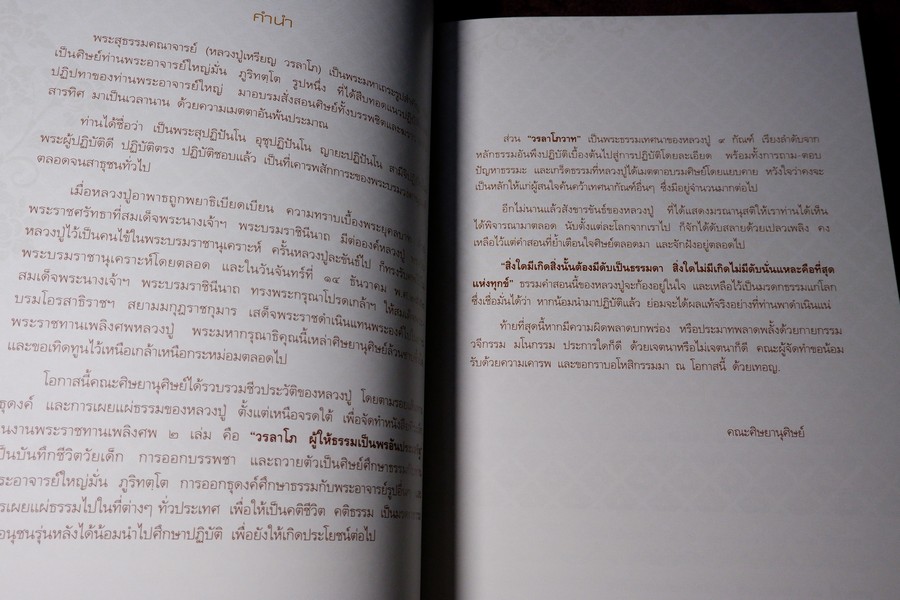 คำนำ
พระสุธรรมคณาจารย์ (หลวงปู่เหรียญ วรลาโภ) เป็นพระมหาเถระรูปสำคัญ
เป็นศิษย์ท่านพระอาจารย์ใหญ่มั่น ภูริทตฺโต รูปหนึ่ง ที่ได้สืบทอดแนวปฏิบัติ
ปฏิปทาของท่านพระอาจารย์ใหญ่ มาอบรมสั่งสอนศิษย์ทั้งบรรพชิตและฆราวาส
สารทิศ มาเป็นเวลานาน ด้วยความเมตตาอันพ้นประมาณ
ท่านได้ชื่อว่า เป็นพระสุปฏิปันโน อุชุปฏิปันโน ญายะปฏิปันโน สามีจิ
พระผู้ปฏิบัติดี ปฏิบัติตรง ปฏิบัติชอบแล้ว เป็นที่เคารพสักการะของพระบรมวงศ
ตลอดจนสาธุชนทั่วไป
เมื่อหลวงปู่อาพาธถูกพยาธิเบียดเบียน ความทราบเบื้องพระยุคลบาท
พระราชศรัทธาที่สมเด็จพระนางเจ้าฯ พระบรมราชินีนาถ มีต่อองค์หลวงปู่
หลวงปู่ไว้เป็นคนไข้ในพระบรมราชานุเคราะห์ ครั้นหลวงปู่ละขันธ์ไป ก็ทรงรับ
พระบรมราชานุเคราะห์โดยตลอด และในวันจันทร์ที่ ๑๔ ธันวาคม พ.ศ.
สมเด็จพระนางเจ้าฯ พระบรมราชินีนาถ ทรงพระกรุณาโปรดเกล้าฯ ให้สมเด็จ
บรมโอรสาธิราชฯ สยามมกุฎราชกุมาร เสด็จพระราชดำเนินแทนพระองค์ไป
พระราชทานเพลิงศพหลวงปู่ พระมหากรุณาธิคุณนี้เหล่าศิษยานุศิษย์ล้วน
และขอเทิดทูนไว้เหนือเกล้าเหนือกระหม่อมตลอดไป
โอกาสนี้คณะศิษยานุศิษย์ได้รวบรวมชีวประวัติของหลวงปู่ โดยตามรอย
ธุดงค์ และการเผยแผ่ธรรมของหลวงปู่ ตั้งแต่เหนือจรดใต้ เพื่อจัดทำหนังสือ
นงานพระราชทานเพลิงศพ ๒ เล่ม คือ "วรลาโภ ผู้ให้ธรรมเป็นพรอันประเสริฐ
ป็นบันทึกชีวิตวัยเด็ก การออกบรรพชา และถวายตัวเป็นศิษย์ศึกษาธรรม
ระอาจารย์ใหญ่มั่น ภูริทตฺโต การออกธุดงค์ศึกษาธรรมกับพระอาจารย์รูปอื่นๆ
รเผยแผ่ธรรมไปในที่ต่างๆ ทั่วประเทศ เพื่อให้เป็นคติชีวิต คติธรรม เป็น
อนุชนรุ่นหลังได้น้อมนำไปศึกษาปฏิบัติ เพื่อยังให้เกิดประโยชน์ต่อไป
ส่วน "วรลาโภวาท" เป็นพระธรรมเทศนาของหลวงปู่ ๙ กัณฑ์ เรียงลำดับจาก
หลักธรรมอันพึงปฏิบัติเบื้องต้นไปสู่การปฏิบัติโดยละเอียด พร้อมทั้งการถาม-ตอบ
ปัญหาธรรมะ และเกร็ดธรรมที่หลวงปู่ได้เมตตาอบรมศิษย์โดยแยบคาย หวังใจว่าคงจะ
เป็นหลักให้แก่ผู้สนใจค้นคว้าเทศนากัณฑ์อื่นๆ ซึ่งมีอยู่จำนวนมากต่อไป
อีกไม่นานแล้วสังขารขันธ์ของหลวงปู่ ที่ได้แสดงมรณานุสติให้เราท่านได้เห็น
ได้พิจารณามาตลอด นับตั้งแต่ละโลกจากเราไป ก็จักได้ดับสลายด้วยเปลวเพลิง คง
เหลือไว้แต่คำสอนที่ย้ำเตือนใจศิษย์ตลอดมา และจักฝังอยู่ตลอดไป
"สิ่งใดมีเกิดสิ่งนั้นต้องมีดับเป็นธรรมดา สิ่งใดไม่มีเกิดไม่มีดับนั่นแหละคือที่สุด
แห่งทุกข์" ธรรมคำสอนนี้ของหลวงปู่จะก้องอยู่ในใจ และเหลือไว้เป็นมรดกธรรมแก่โลก
ซึ่งเชื่อมั่นได้ว่า หากน้อมนำมาปฏิบัติแล้ว ย่อมจะได้ผลแท้จริงอย่างที่ท่านพาดำเนินแน่
ท้ายที่สุดนี้หากมีความผิดพลาดบกพร่อง หรือประมาทพลาดพลั้งด้วยกายกรรม
วจีกรรม มโนกรรม ประการใดก็ดี ด้วยเจตนาหรือไม่เจตนาก็ดี คณะผู้จัดทำขอน้อม
รับด้วยความเคารพ และขอกราบอโหสิกรรมมา ณ โอกาสนี้ ด้วยเทอญ.
คณะศิษยานุศิษย์